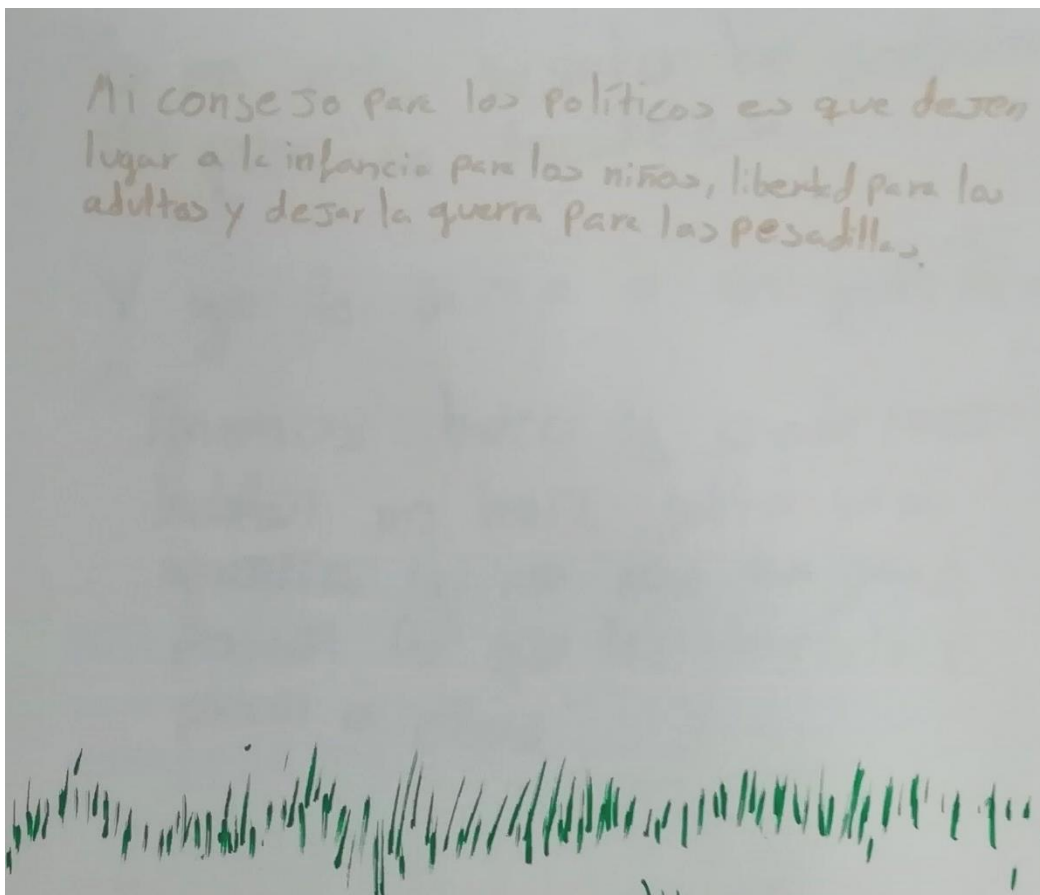 Mi consejo para los políticos es que dejen
lugar a la infancia para los niños, libertad para los
adultos y dejar la guerra para las pesadillas.